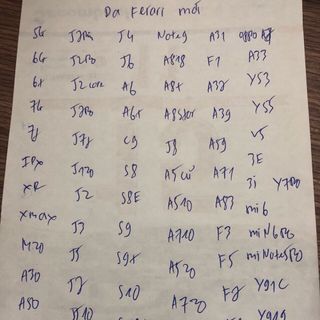 Da Ferari mới
5G J2Pro J4 Note9 A31 oppo A7
6G J2Pro J6 A818 F1 A33
6+ J2 core A6 A8+ A37 Y53
7G J7Pro A6+ A8Star A39 Y55
7+ J7+ C9 J8 A59 V5
IPX J120 S8 A5 cũ A71 3E
XR J2 S8E A510 A83 3i Y7Pro
Xmax J3 S9 A710 F3 mi6
M20 J5 S9+ A520 F5 miN6Pro
A30 J7 S10 A720 F7 miNote5Pro
A50 J510 Y91C